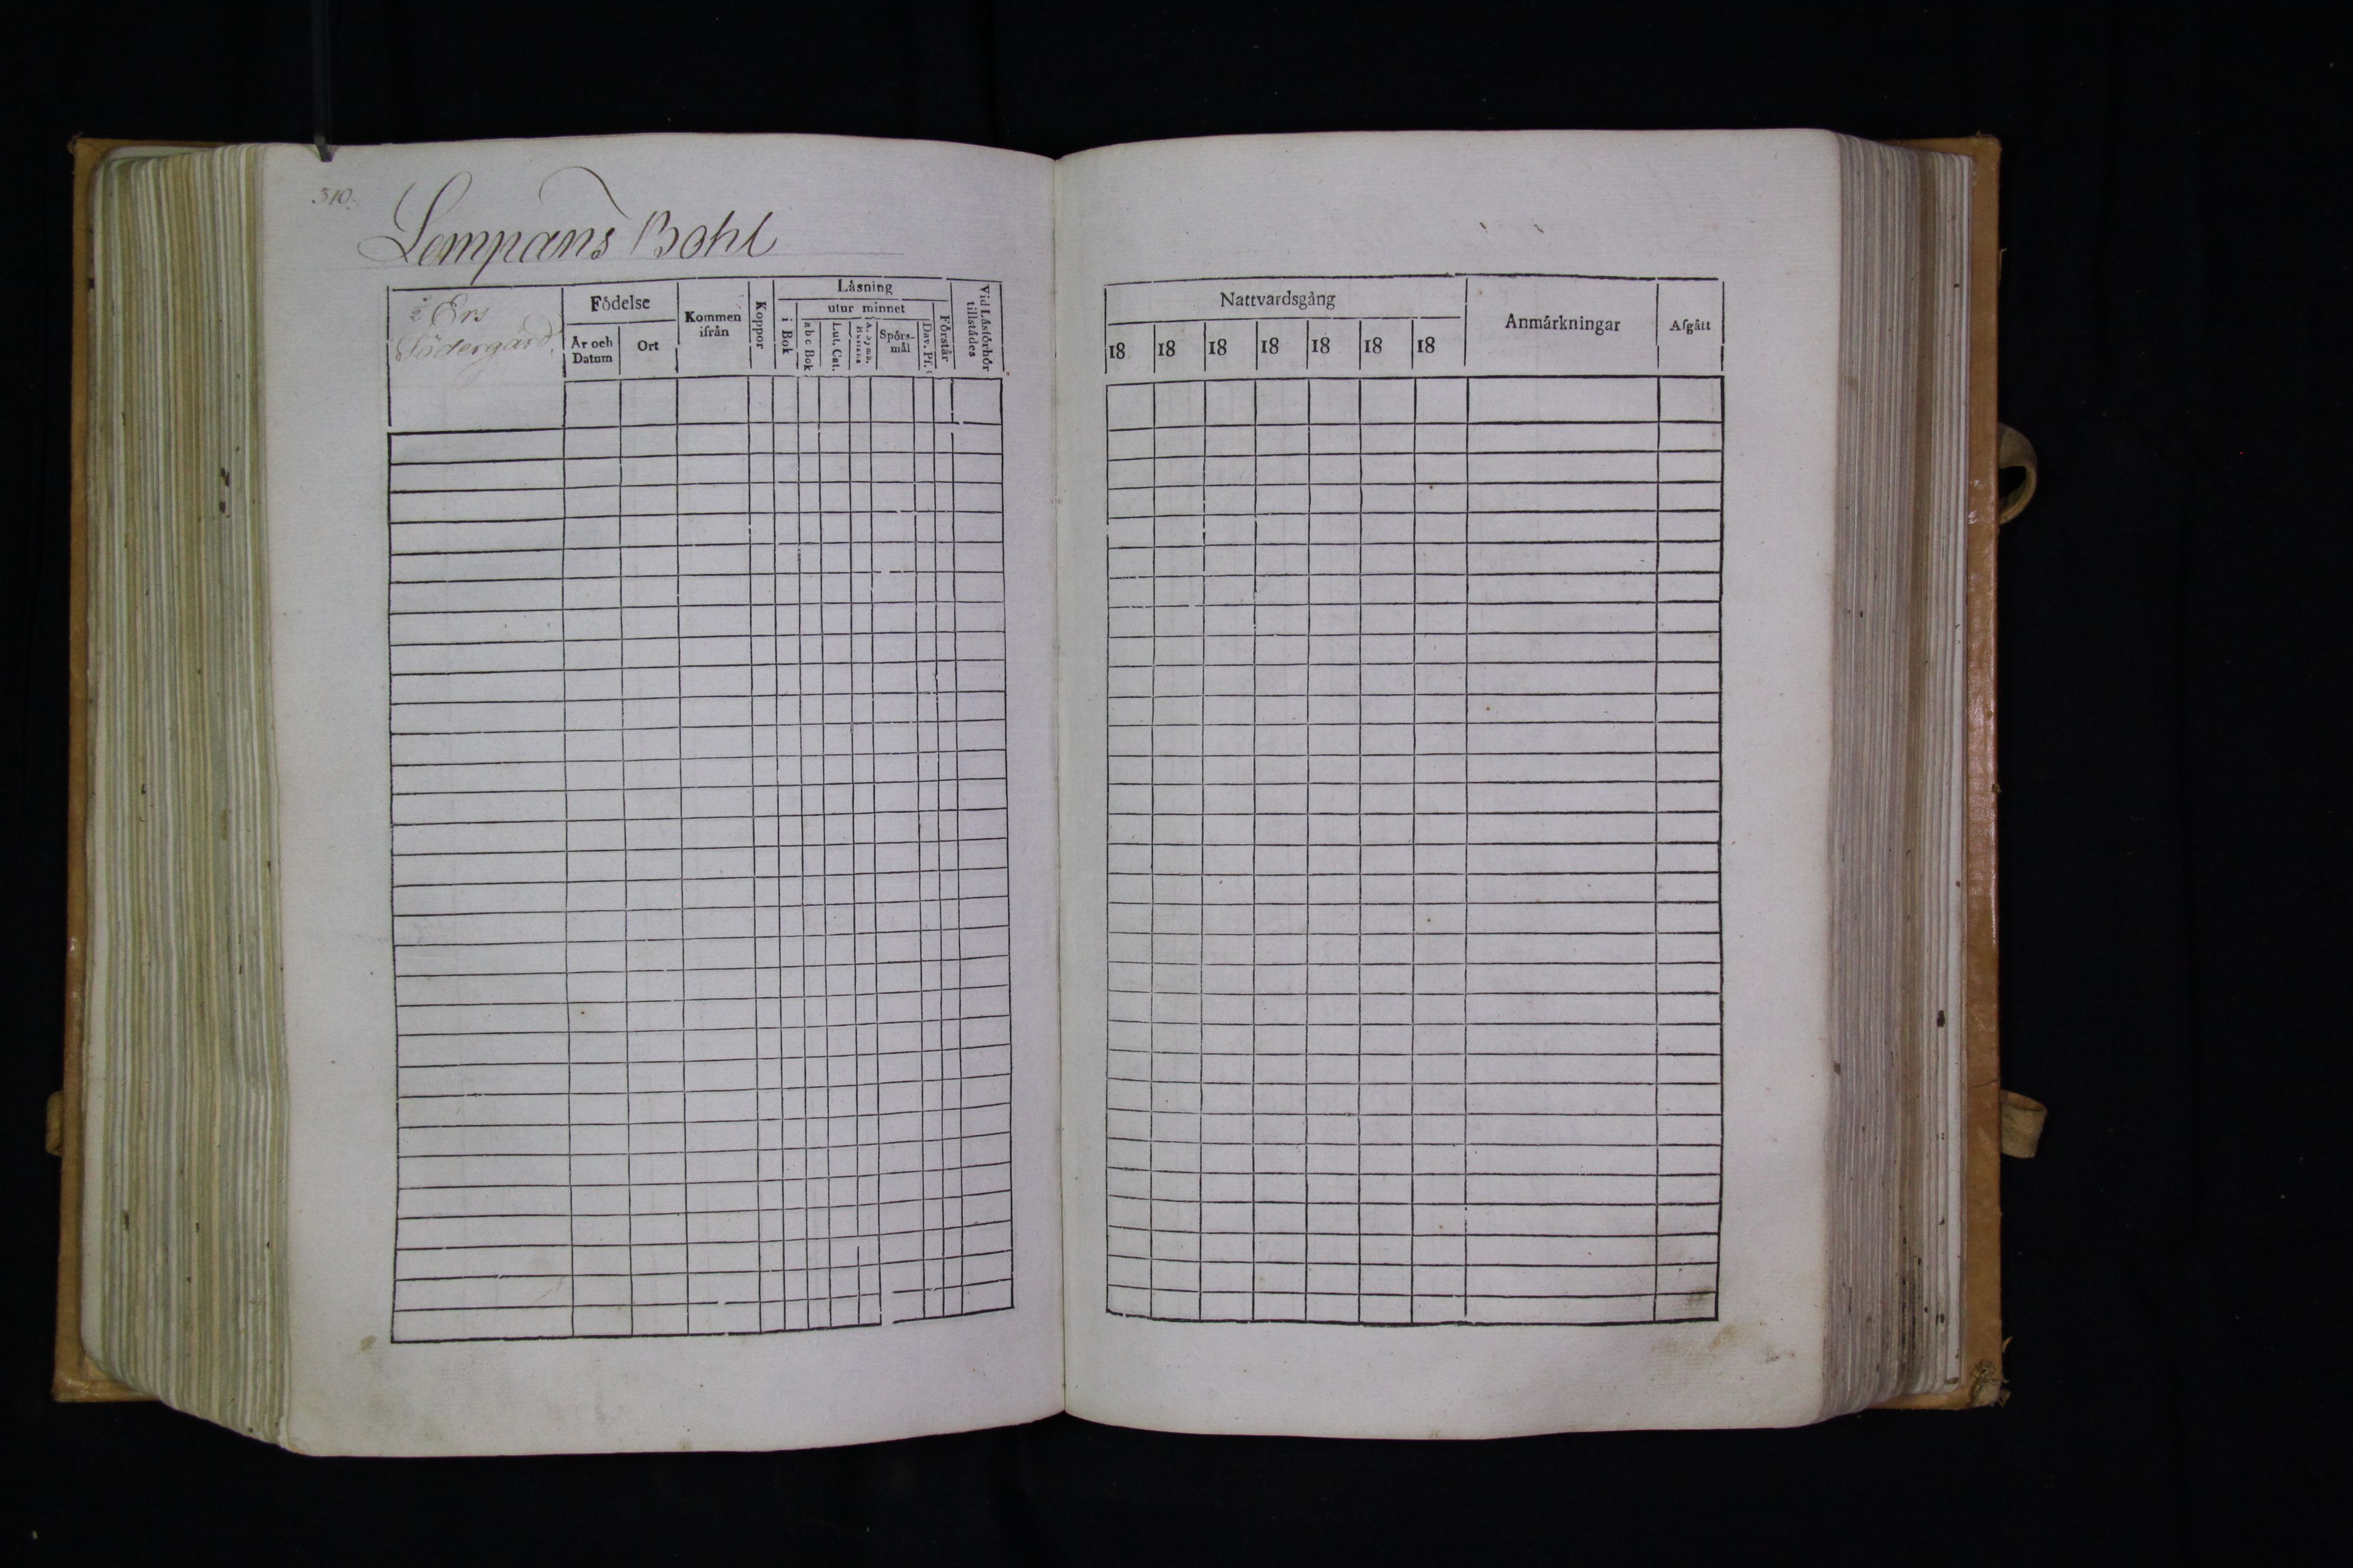 310.
Lempans Bohl
2 Ers
Södergård.
Födelse
År och
Datum
Ort
Kommen
ifrån
Koppor
Läsning
i Bok
utur minnet
a b c Bok
Lut. Cat.
Spörs-
mål
Dav. Ps.
Förstår
Vid Läsförhör
tillstädes
Nattvardsgång
18 18 18 18 18 18 18
Anmärkningar
Afgått